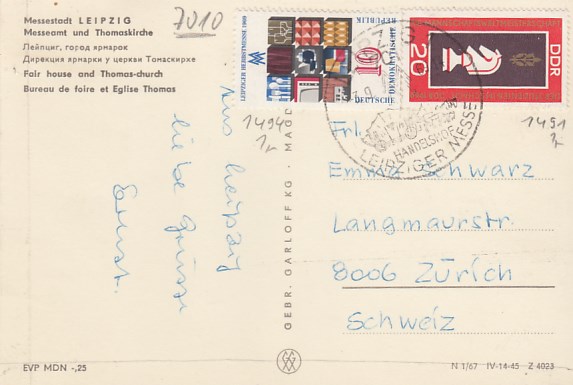 Messestadt LEIPZIG
Messeamt und Thomaskirche
Лейпциг, город ярмарок
Дирекция ярмарки у церкви Томаскирхе
Fair house and Thomas-church
Bureau de foire et Eglise Thomas
7010
LEIPZIGER HERBSTMESSE 1969
DEUTSCHE DEMOKRATISCHE REPUBLIK
10
DDR
20
HANDELSHOF
LEIPZIGER MESSE
1494
1491
Aus Leipzig
liebe Grüsse
Ernst.
GEBR. GARLOFF KG · MAGD
Frl.
Emma Schwarz
Langmaurstr.
8006 Zürich
Schweiz
EVP MDN -,25
N 1/67 IV-14-45 Z 4023